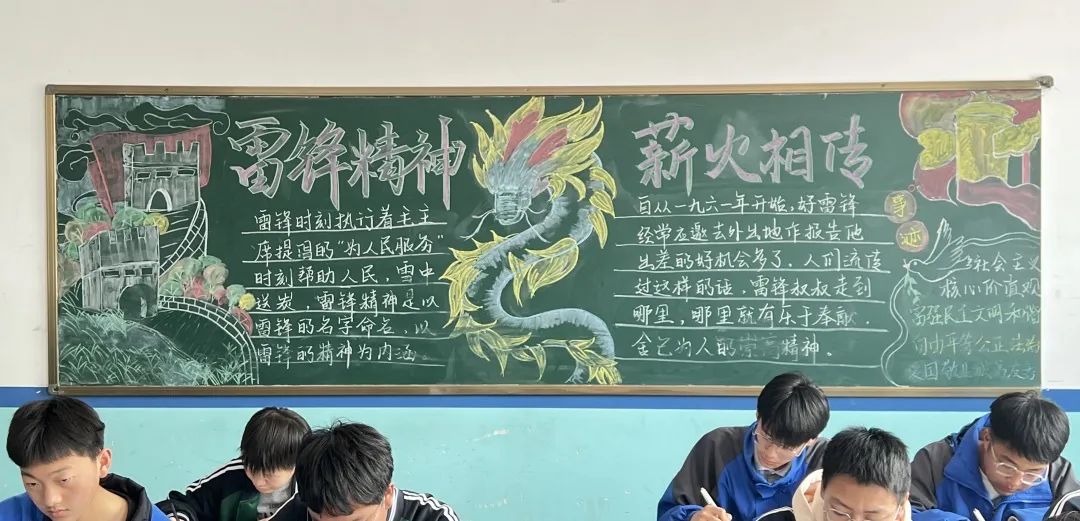 雷锋精神
雷锋时刻执行着毛主
席提倡的“为人民服务”
时刻帮助人民,雪中
送炭,雷锋精神是以
雷锋的名字命名,以
雷锋的精神为内涵。
薪火相传
自从一九六一年开始,好雷锋
经常应邀去外出地作报告他
出差的好机会多了,人们流传
过这样的话,雷锋叔叔走到
哪里,哪里就有乐于奉献,
舍己为人的崇高精神。
事
迹
社会主义
核心价值观
富强民主文明和谐
自由平等公正法治
爱国敬业